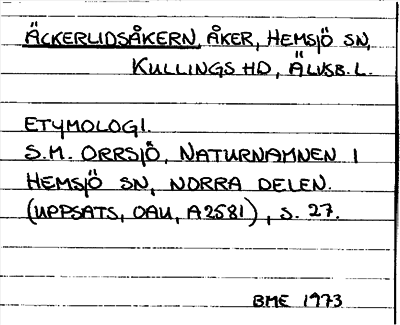 ÄCKERLIDSÅKERN, ÅKER, HEMSJÖ SN,
KULLINGS HD, ÄLVSB. L.
ETYMOLOGI.
S.M. ORRSJÖ, NATURNAMNEN I
HEMSJÖ SN, NORRA DELEN.
(UPPSATS, OAU, A2581), S. 27.
BME 1973